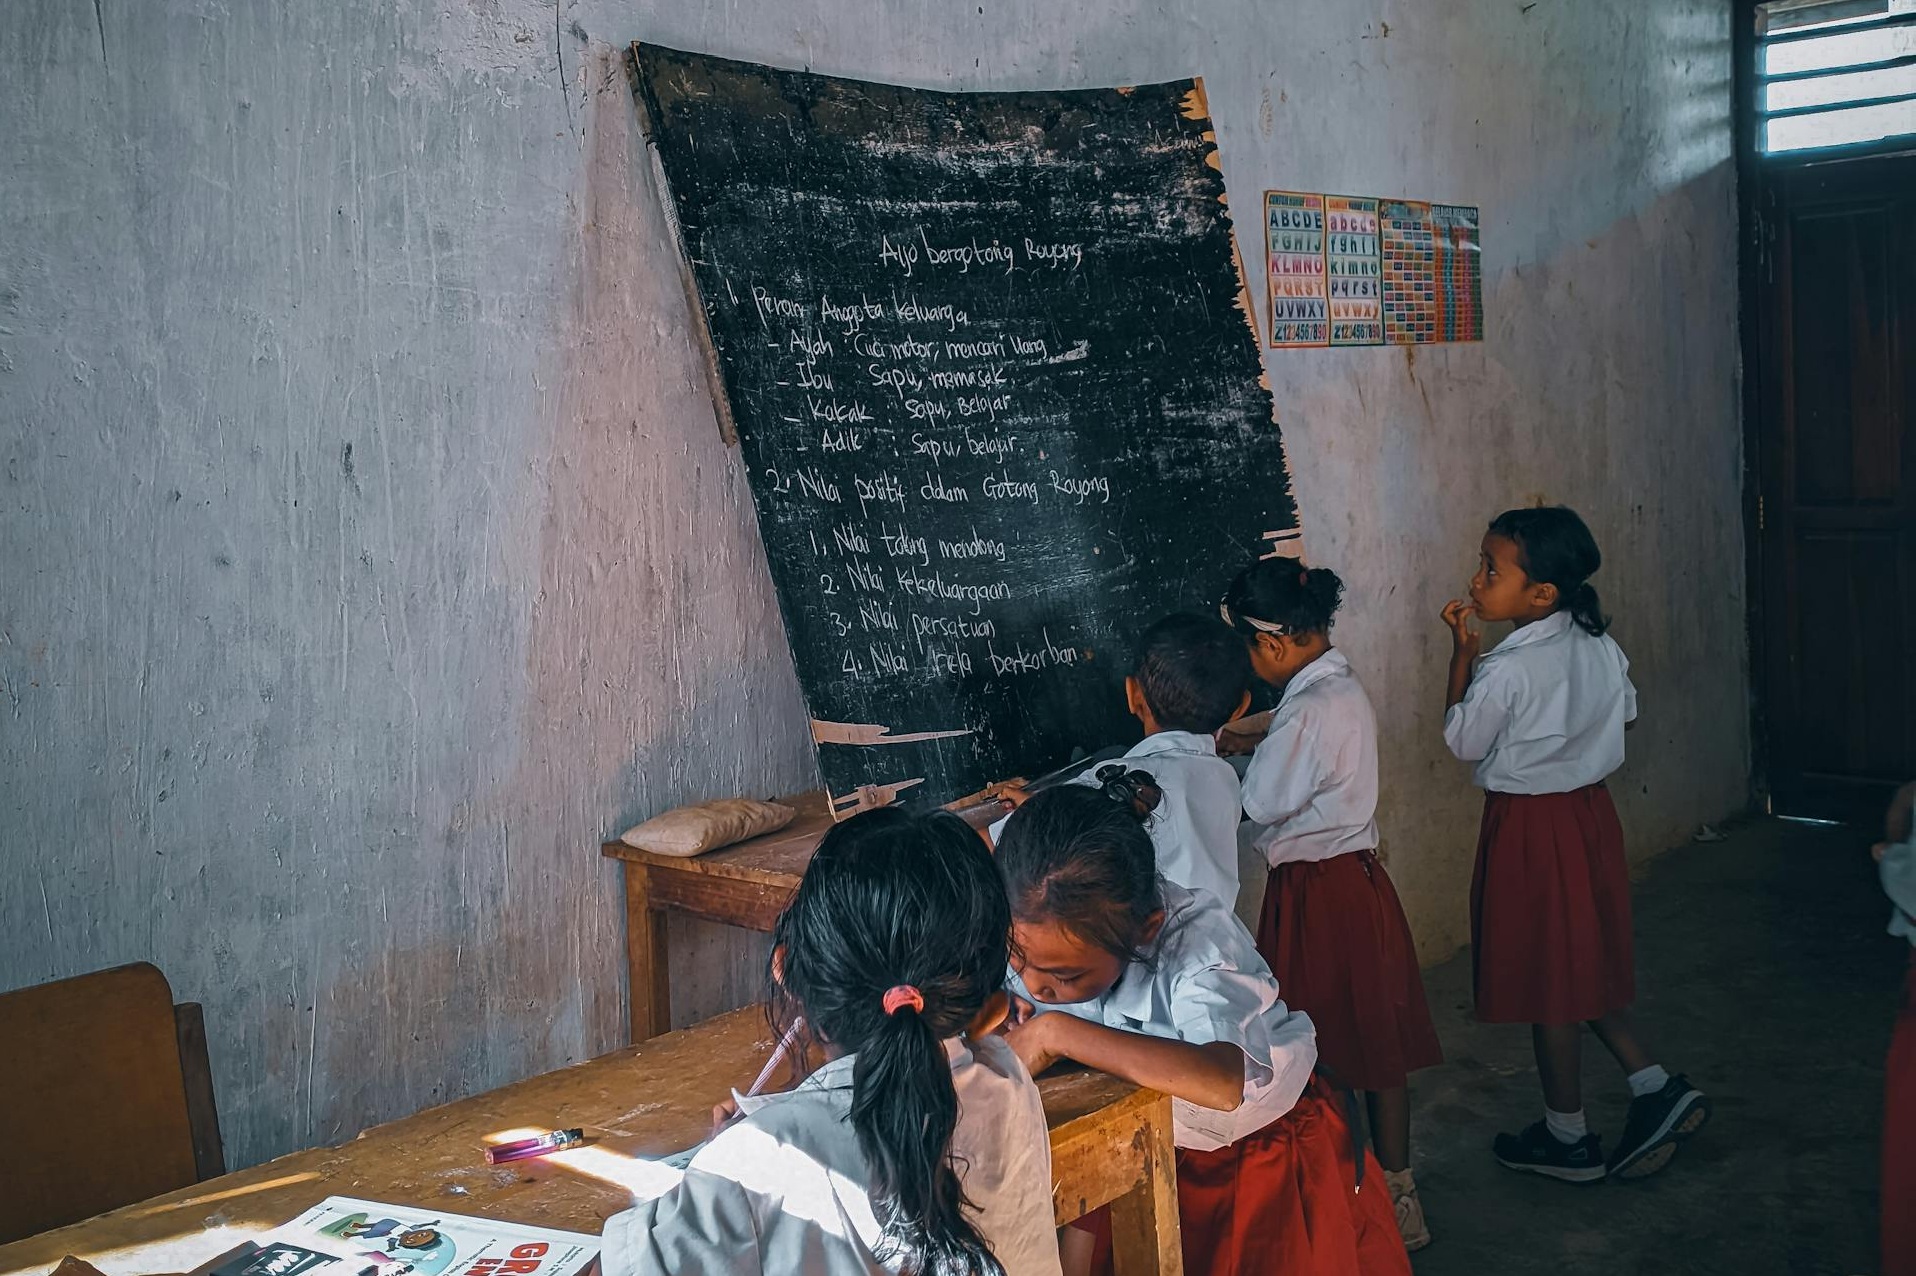 Ayo bergotong Royong
1. Peran Anggota Keluarga
- Ayah Cuci motor, mencari Uang
- Ibu Sapu, memasak.
- Kakak : Sapu, Belajar
- Adik : Sapu, belajar.
2. Nilai positif dalam Gotong Royong
1. Nilai tolong menolong
2. Nilai Kekeluargaan
3. Nilai persatuan
4. Nilai rela berkorban
ABCDE
FGHIJ
KLMNO
PQRST
UVWXY
Z1234567890
abcde
fghij
klmno
pqrst
uvwxy
z1234567890